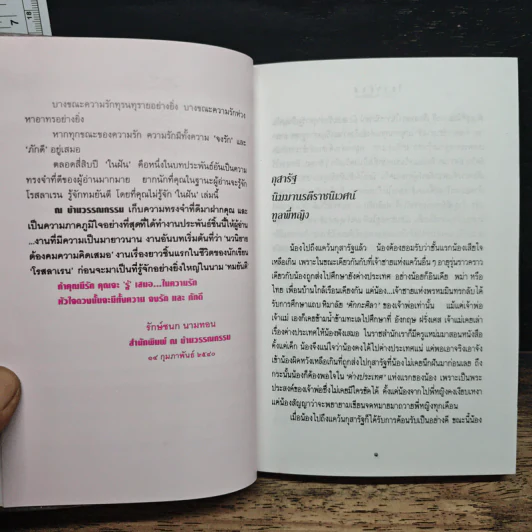 บางขณะความรักทุรนทุรายอย่างยิ่ง บางขณะความรักห่วง
หาอาทรอย่างยิ่ง
หากทุกขณะของความรัก ความรักมีทั้งความ 'จงรัก' และ
'ภักดี' อยู่เสมอ
ตลอดสี่สิบปี 'ในฝัน' คือหนึ่งในบทประพันธ์อันเป็นความ
ทรงจำที่ดีของผู้อ่านมากมาย ยากนักที่คุณในฐานะผู้อ่านจะรู้จัก
โรสลาเรน รู้จักทมยันตี โดยที่คุณไม่รู้จัก 'ในฝัน' เล่มนี้
ณ บ้านวรรณกรรม เก็บความทรงจำที่ดีมาฝากคุณ และ
เป็นความภาคภูมิใจอย่างที่สุดที่ได้ทำงานประพันธ์ชิ้นนี้ให้ผู้อ่าน
...งานที่มีความเป็นมายาวนาน งานอันบทเริ่มต้นที่ว่า 'วนิยาย
ต้องคมความคิดเสมอ' งานเรื่องยาวชิ้นแรกในชีวิตของนักเขียน
'โรสลาเรน' ก่อนจะมาเป็นที่รู้จักอย่างยิ่งใหญ่ในนาม 'ทมยันตี'
ถ้าคุณมีรัก คุณจะ 'รู้' เสมอ...ในความรัก
หัวใจดวงนั้นจะมีทั้งความ จงรัก และ ภักดี
รักษ์ชนก นามทอน
สำนักพิมพ์ ณ บ้านวรรณกรรม
๑๔ กุมภาพันธ์ ๒๕๔๐
กุสารัฐ
นิมมานรดีราชนิเวศน์
ทูลพี่หญิง
น้องไปถึงแคว้นกุสารัฐแล้ว น้องต้องยอมรับว่าชั้นแรกน้องเสียใจ
เหลือเกิน เพราะในขณะเดียวกันกับที่เจ้าชายแห่งแคว้นอื่น ๆ อายุรุ่นราวคราว
เดียวกับน้องถูกส่งไปศึกษายังต่างประเทศ อย่างน้อยก็อินเดีย พม่า หรือ
ไทย เพื่อนบ้านใกล้เรือนเคียงกัน แต่น้อง...เจ้าชายแห่งพรหมมินทรกลับได้
รับการศึกษาแถบหิมาลัย 'ตักกะศิลา' ของเจ้าพ่อเท่านั้น แม้แต่เจ้าพ่อ
เจ้าแม่ เองก็เคยข้ามน้ำข้ามทะเลไปศึกษาที่ อังกฤษ ฝรั่งเศส เจ้าแม่เคยเล่า
เรื่องต่างประเทศให้น้องฟังเสมอ ในราชสำนักเราก็มีครูแหม่มมาสอนหนังสือ
ตั้งแต่เด็ก น้องจึงแน่ใจว่าน้องคงได้ไปต่างประเทศแน่ แต่พอเอาจริงเอาจัง
เข้าน้องผิดหวังเหลือเกินที่ถูกส่งไปกุสารัฐที่น้องไม่เคยนึกฝันมาก่อนเลย ถึง
กระนั้นน้องก็ต้องพอใจใน 'ต่างประเทศ' แห่งแรกของน้อง เพราะเป็นพระ
ประสงค์ของเจ้าพ่อซึ่งไม่เคยมีใครขัดได้ ตั้งแต่น้องจากไปพี่หญิงคงเงียบเหงา
แต่น้องสัญญาว่าจะพยายามเขียนจดหมายมาถวายพี่หญิงทุกเดือน
เมื่อน้องไปถึงแคว้นกุสารัฐก็ได้รับการต้อนรับเป็นอย่างดี ขณะนี้น้อง